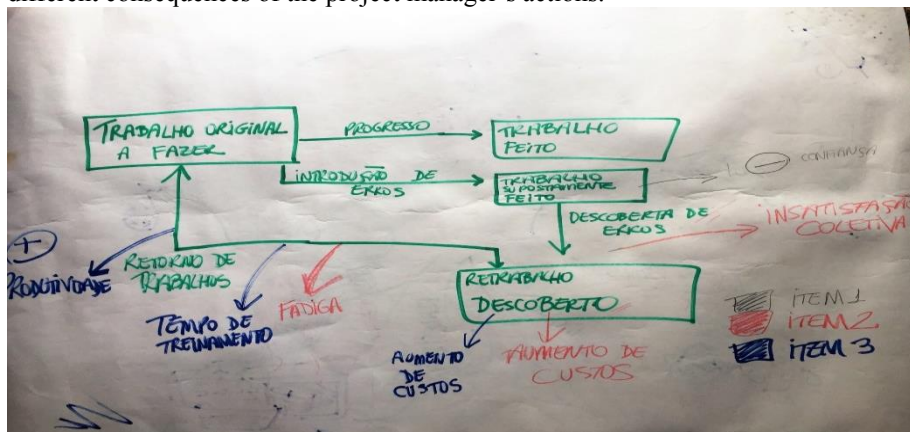 different consequences of the project manager's actions.
TRABALHO ORIGINAL
A FAZER
PROGRESSO
TRABALHO
FEITO
INTRODUÇÃO DE
ERROS
TRABALHO
SUPOSTAMENTE
FEITO
CONFIANÇA
DESCOBERTA DE
ERROS
INSATISFAÇÃO
COLETIVA
+
PRODUTIVIDADE
RETORNO DE
TRABALHOS
TEMPO DE
TREINAMENTO
FADIGA
RETRABALHO
DESCOBERTO
AUMENTO
DE
CUSTOS
AUMENTO DE
CUSTOS
ITEM 1
ITEM 2
ITEM 3